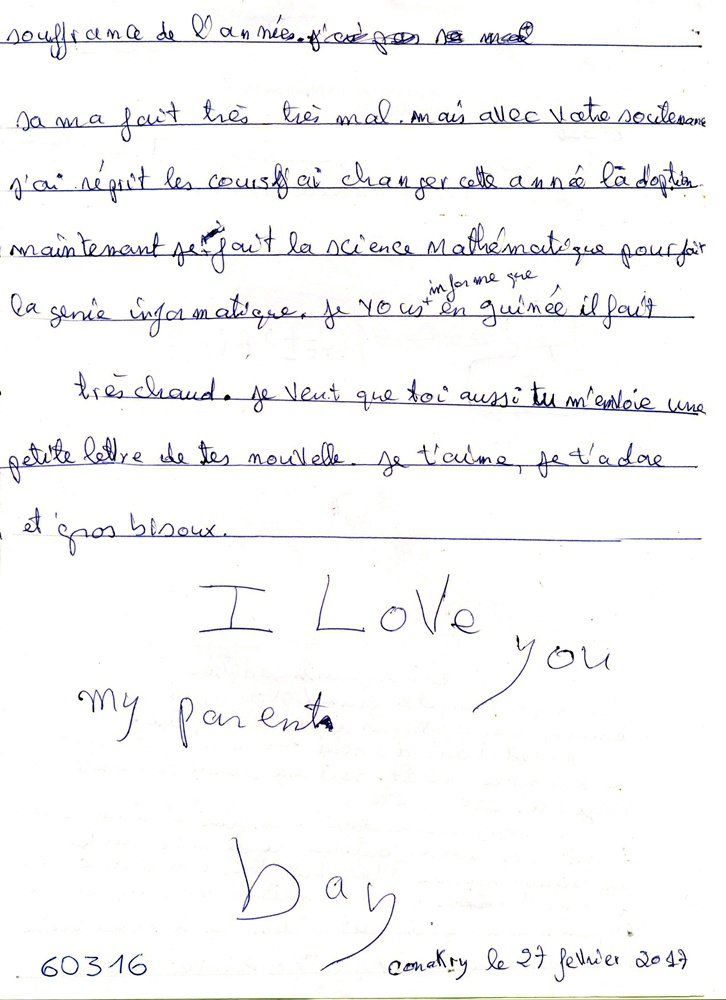 souffrance de l'années.
sa ma fait très très mal. mais avec votre soutenane
j'ai réprit les cours j'ai changer cette année là d'option
maintenant je fait la science Mathématique pour fait
la genie informatique. je vous informe que en guinée il fait
très chaud. je veut que toi aussi tu m'envoie une
petite lettre de tes nouvelle. je t'aime, je t'adore
et gros bisoux.
I LoVe you
my parent
Day
60316
conakry le 27 fevrier 2017